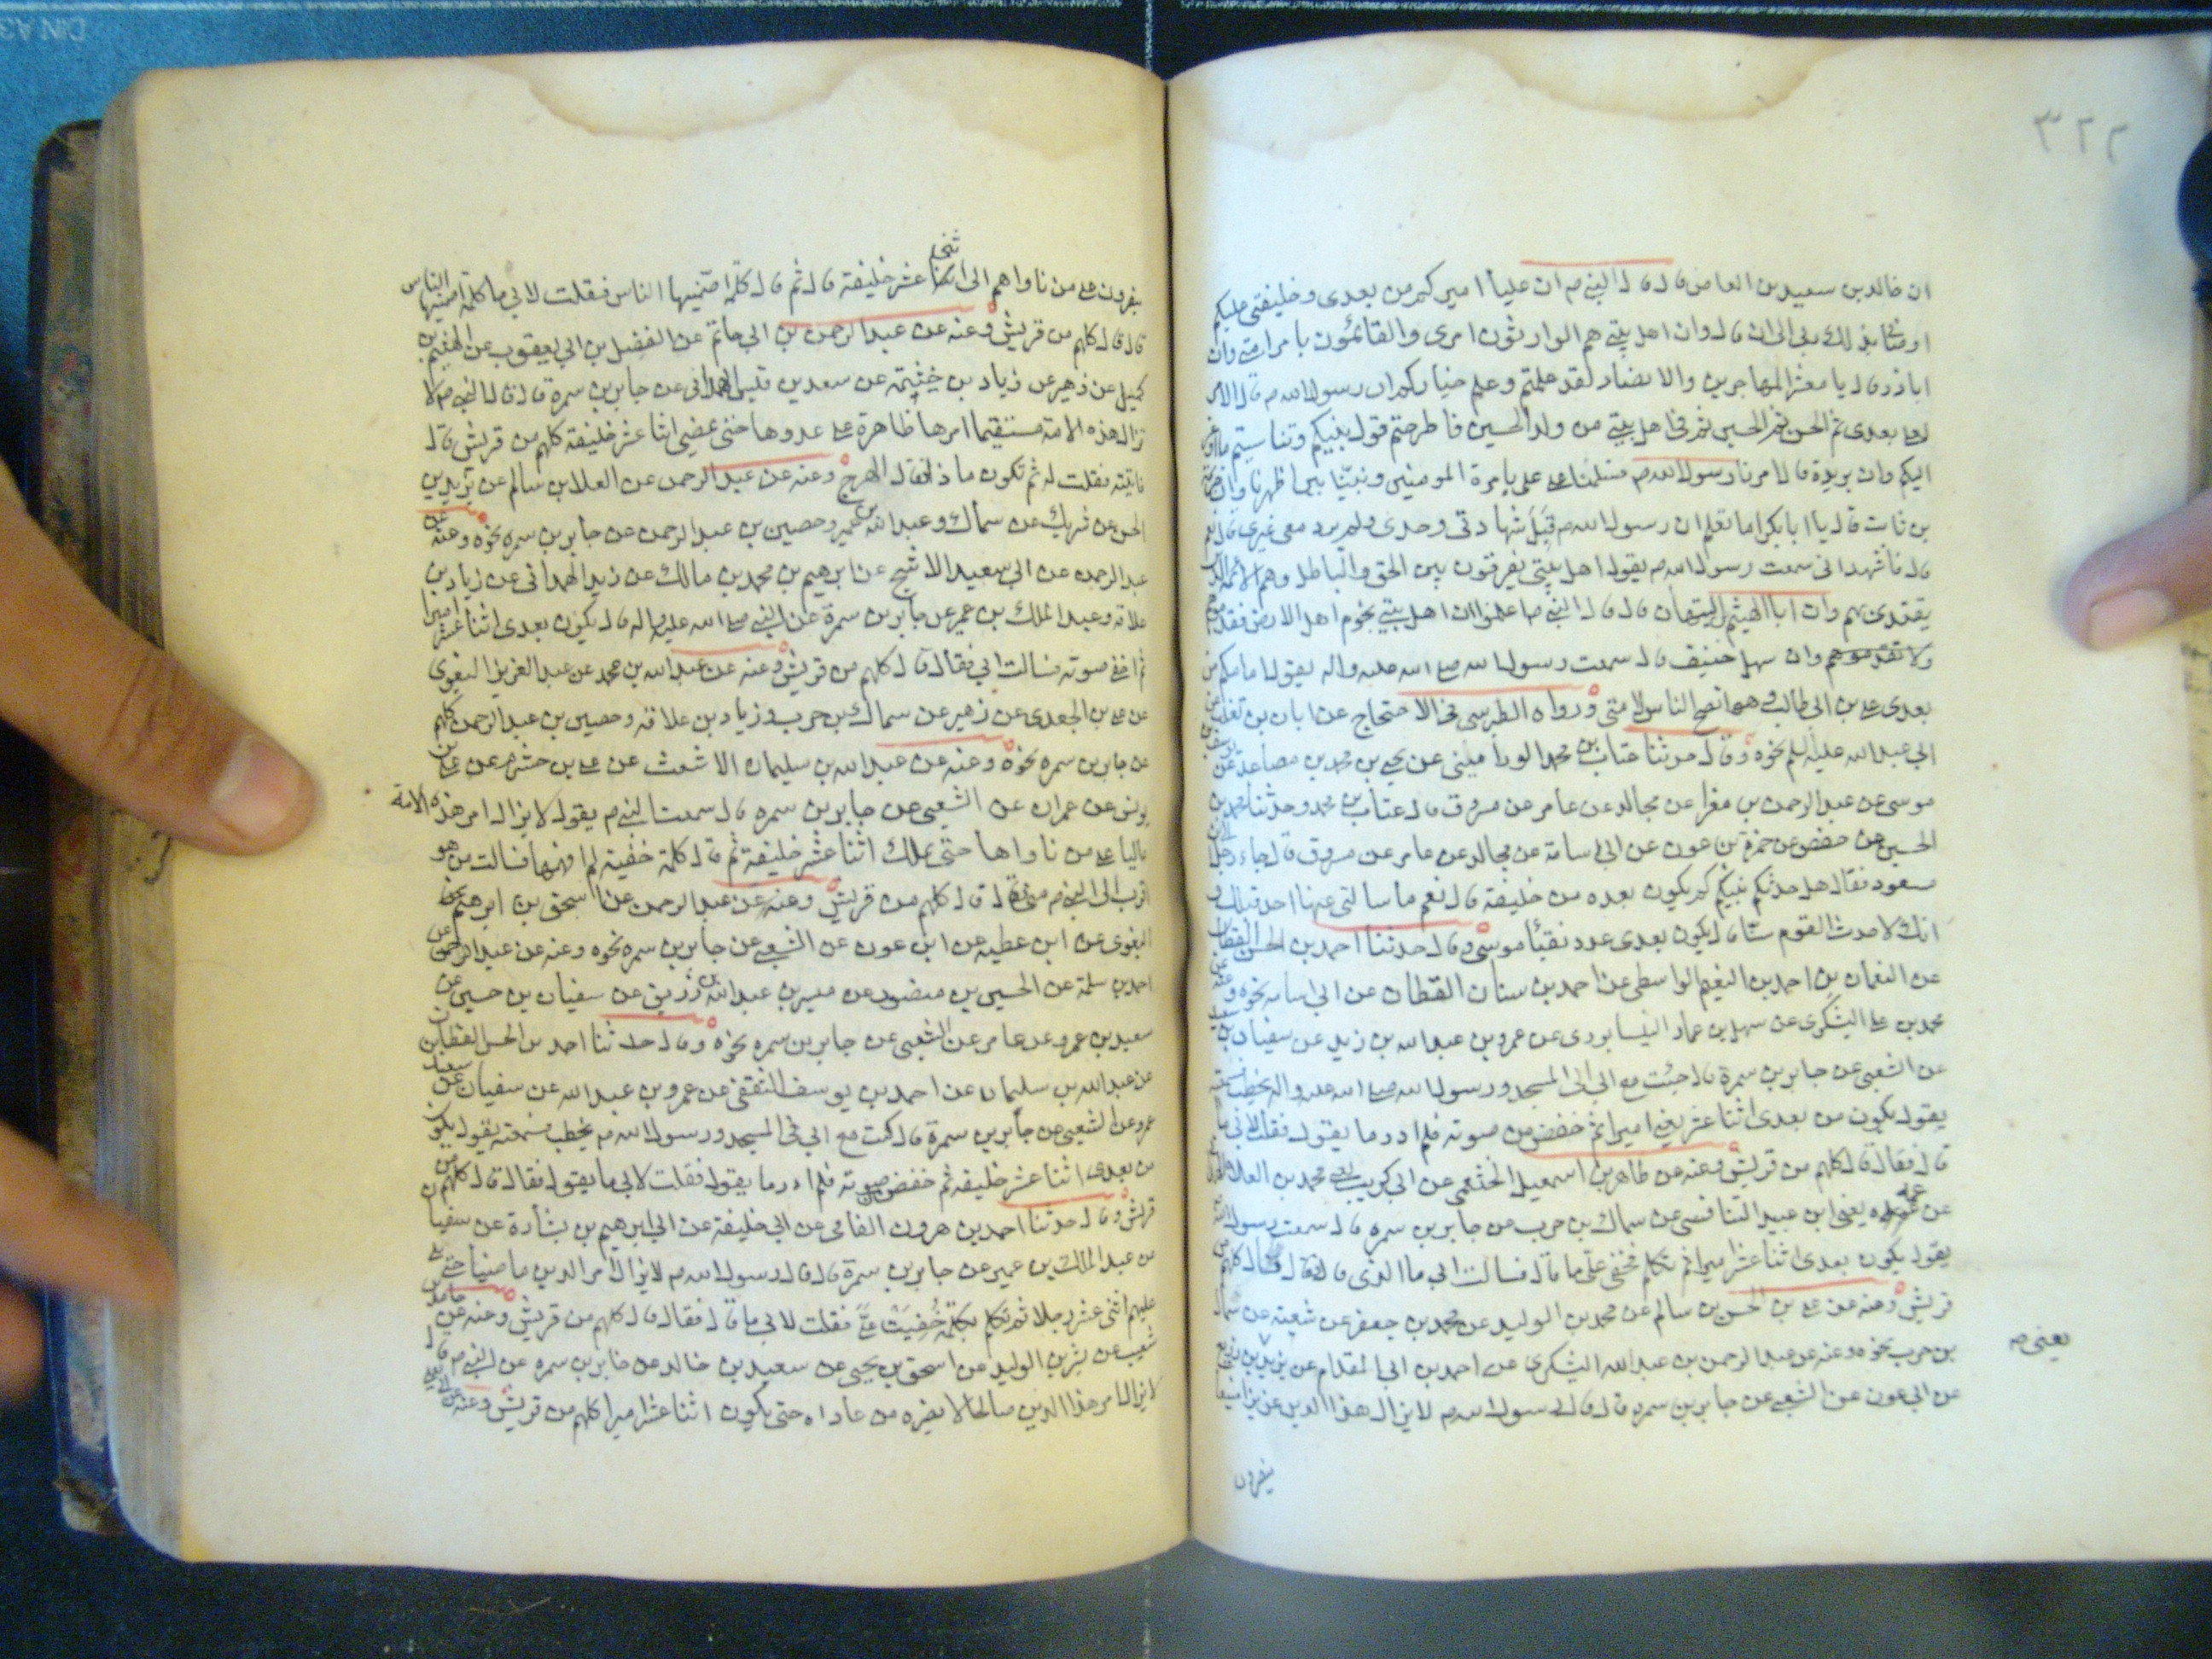 ٣٢٢
ان خالد بن سعيد بن العاص قال قال النبي ص ان عليا اميركم من بعدى وخليفتى عليكم
اوصانا بذلك ربى الى ان قال وان اهل بيتى هم الوارثون امرى والقائمون بامر امتى وان
اباذر قال يا معشر المهاجرين والانصار لقد علمتم وعلم خياركم ان رسول الله ص قال الامر
لعلى بعدى ثم الحسن ثم الحسين ثم فى اهل بيتى من ولد الحسين فاطرحتم قول نبيكم وتناسيتم ما
اليكم وان بريدة قال امرنا رسول الله ص فسلمنا على على بامرة المومنين ونبينا بين اظهرنا وان
بن ثابت قال يا ابابكر اما تعلم ان رسول الله ص قبل شهادتى وحدى ولم يرد معى غيرى قال نعم
قال فاشهد انى سمعت رسول الله ص يقول اهل بيتى يفرقون بين الحق والباطل وهم الائمة الذين
يقتدى بهم وان ابا الهيثم بن التيهان قال قال النبي ص اعلموا ان اهل بيتى نجوم اهل الارض فقدموهم
ولا تقدموهم وان سهل حنيف قال سمعت رسول الله صلى الله عليه واله يقول امامكم من
بعدى على بن ابى طالب وهو انصح الناس لامتى ورواه الطبرسى فى الاحتجاج عن ابان بن تغلب عن
ابى عبد الله عليه السلم نحوه وقال حدثنا عتاب بن محمد الوراميني عن يحيى بن محمد بن صاعد عن
موسى عن عبد الرحمن بن مغرا عن مجالد عن عامر عن مسروق قال عتاب بن محمد وحدثنا محمد بن
الحسين عن حفص عن حمزة بن عون عن ابى اسامة عن مجالد عن عامر عن مسروق قال جاء رجل
مسعود فقال هل حدثكم نبيكم كم يكون بعده من خليفة قال نعم ما سالنى عنها احد قبلك
انك لاحدث القوم سنا قال يكون بعدى عدد نقبا موسى وقال حدثنا احمد بن الحسن القطان
عن النعمان بن احمد بن النعيم الواسطى عن احمد بن سنان القطان عن ابى اسامه نحوه وعنه
محمد بن على اليشكرى عن سهل بن عمار النيسابوردى عن عمرو بن عبد الله بن زيد عن سفيان بن
عن الشعبى عن جابر بن سمرة قال جئت مع ابى الى المسجد ورسول الله صلى الله عليه واله يخطب فسمعته
يقول يكون من بعدى اثنا عشر يعنى اميرا ثم خفض من صوته فلم ادر ما يقول فقلت لابى ما
قال فقال قال كلهم من قريش وعنه عن طاهر بن اسمعيل الخثعمى عن ابى كريب محمد بن العلا
عن عمه يعنى ابن عبيد الطنافسى عن سماك بن حرب عن جابر بن سمره قال سمعت رسول الله
يقول يكون بعدى اثنا عشر اميرا ثم تكلم فخفى على ما قال فسالت ابى ما الذى قال فقال قال كلهم
قريش وعنه عن على بن الحسن بن سالم عن محمد بن الوليد عن محمد بن جعفر عن شعبة عن سماك
يعنى ص
بن حرب نحوه وعنه عن عبد الرحمن بن عبد الله اليشكرى عن احمد بن ابى المقدام عن يزيد بن زريع
عن ابى عون عن الشعبى عن جابر بن سمره قال قال رسول الله ص لا يزال هذا الدين عزيزا منيعا
ينصرون
ينصرون على من ناواهم الى اثنى عشر خليفة قال ثم قال كلمة اصمنيها الناس فقلت لابى ما كلمة اصمنيها الناس
قال قال كلهم من قريش وعنه عن عبد الرحمن بن ابى حاتم عن الفضل بن ابى يعقوب عن الهيثم بن
كميل عن زهير عن زياد بن خيثمة عن سعد بن قيس الهمدانى عن جابر بن سمرة قال قال النبي ص لا
تزال هذه الامة مستقيما امرها ظاهرة على عدوها حتى يمضى اثنا عشر خليفة كلهم من قريش قال
فاتيته فقلت له ثم تكون ماذا فقال الهرج وعنه عن عبد الرحمن عن العلا بن سالم عن يزيد بن
الحسن عن شريك عن سماك وعبد الله بن عمير وحصين بن عبد الرحمن عن جابر بن سمره نحوه وعنه عن
عبد الرحمن عن ابى سعيد الاشج عن ابرهيم بن محمد بن مالك عن زيد الهمدانى عن زياد بن
علاقة وعبد الملك بن عمير عن جابر بن سمرة عن النبى صلى الله عليه واله قال يكون بعدى اثنا عشر اميرا
ثم اخفى صوته فسالت ابى فقال قال كلهم من قريش وعنه عن عبد الله بن محمد عن عبد العزيز البغوى
عن على بن الجعدى عن زهير عن سماك بن حرب وزياد بن علاقة وحصين بن عبد الرحمن كلهم
عن جابر بن سمره نحوه وعنه عن عبد الله بن سليمان الاشعث عن على بن حشرم عن عيسى بن
يونس عن عمران عن الشعبى عن جابر بن سمره قال سمعت النبى ص يقول لا يزال امر هذه الامة
عاليا على من ناواها حتى يملك اثنا عشر خليفة ثم قال كلمة خفية لم افهمها فسالت من هو
اقرب الى النبى ص منى فقال قال كلهم من قريش وعنه عن عبد الرحمن عن اسحق بن ابرهيم
البغوى عن ابن عطيه عن ابن عون عن الشعبى عن جابر بن سمره نحوه وعنه عن عبد الرحمن عن
احمد بن سلمة عن الحسين بن منصور عن ميسر بن عبد الله بن رزين عن سفيان بن حسين عن
سعيد بن عمرو عن عامر عن الشعبى عن جابر بن سمره نحوه وقال حدثنا احمد بن الحسن القطان
عن عبد الله بن سليمان عن احمد بن يوسف الثقفى عن عمرو بن عبد الله عن سفيان عن سعيد
عمرو عن الشعبى عن جابر بن سمرة قال كنت مع ابى فى المسجد ورسول الله ص يخطب فسمعته يقول يكون
من بعدى اثنا عشر خليفة ثم خفض صوته فلم ادر ما يقول فقلت لابى ما يقول فقال قال كلهم من
قريش وقال حدثنا احمد بن هرون الفامى عن ابى خليفة عن ابى ابرهيم بن بشارة عن سفيان
عن عبد الملك بن عمير عن جابر بن سمرة قال قال رسول الله ص لا يزال امر الدين ماضيا حتى
عليهم اثنى عشر رجلا ثم تكلم بكلمة خفيت على فقلت لابى ما قال فقال قال كلهم من قريش وعنه عن حامد بن
شعيب عن بشر بن الوليد عن اسحق بن يحيى عن سعيد بن خالد عن جابر بن سمره عن النبى ص قال
لا يزال امر هذا الدين صالحا لا يضره من عاداه حتى يكون اثنا عشر اميرا كلهم من قريش وعنه